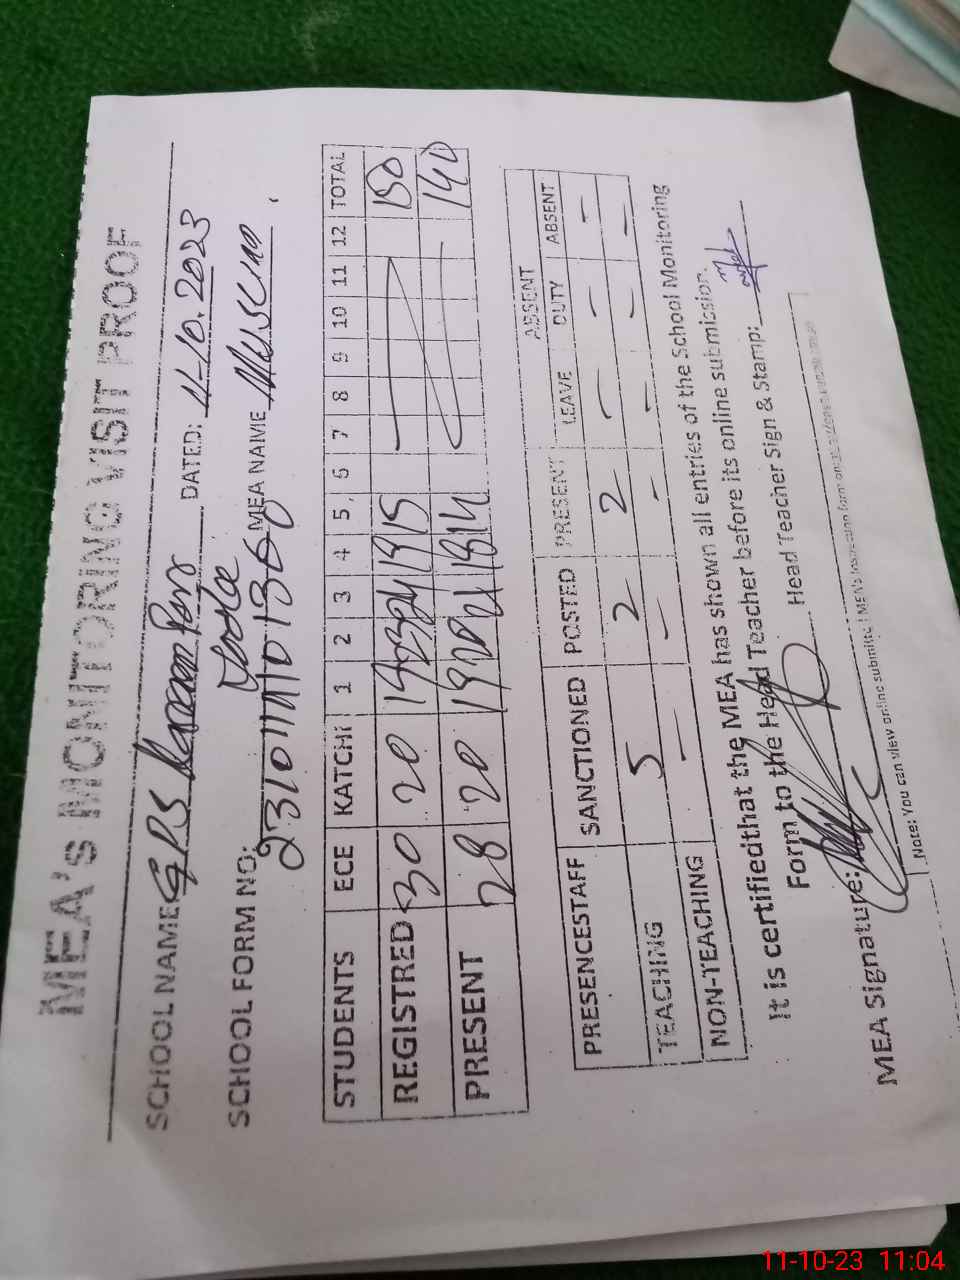 MEA's MONITORING VISIT PROOF
SCHOOL NAME GPS DATED: 11-10.2023
SCHOOL FORM NO: MEA NAME
STUDENTS ECE KATCHI 1 2 3 4 5 6 7 8 9 10 11 12 TOTAL
REGISTRED 30 20 19 19 15 150
PRESENT 28 20 19 20 21 18 14 140
ABSENT
PRESENCESTAFF SANCTIONED POSTED PRESENT LEAVE DUTY ABSENT
TEACHING 5 2 2 - - -
NON-TEACHING - - - - - -
It is certifiedthat the MEA has shown all entries of the School Monitoring
Form to the Head Teacher before its online submission.
MEA Signature: Head Teacher Sign & Stamp:
Note: You can view online submitted
11-10-23 11:04